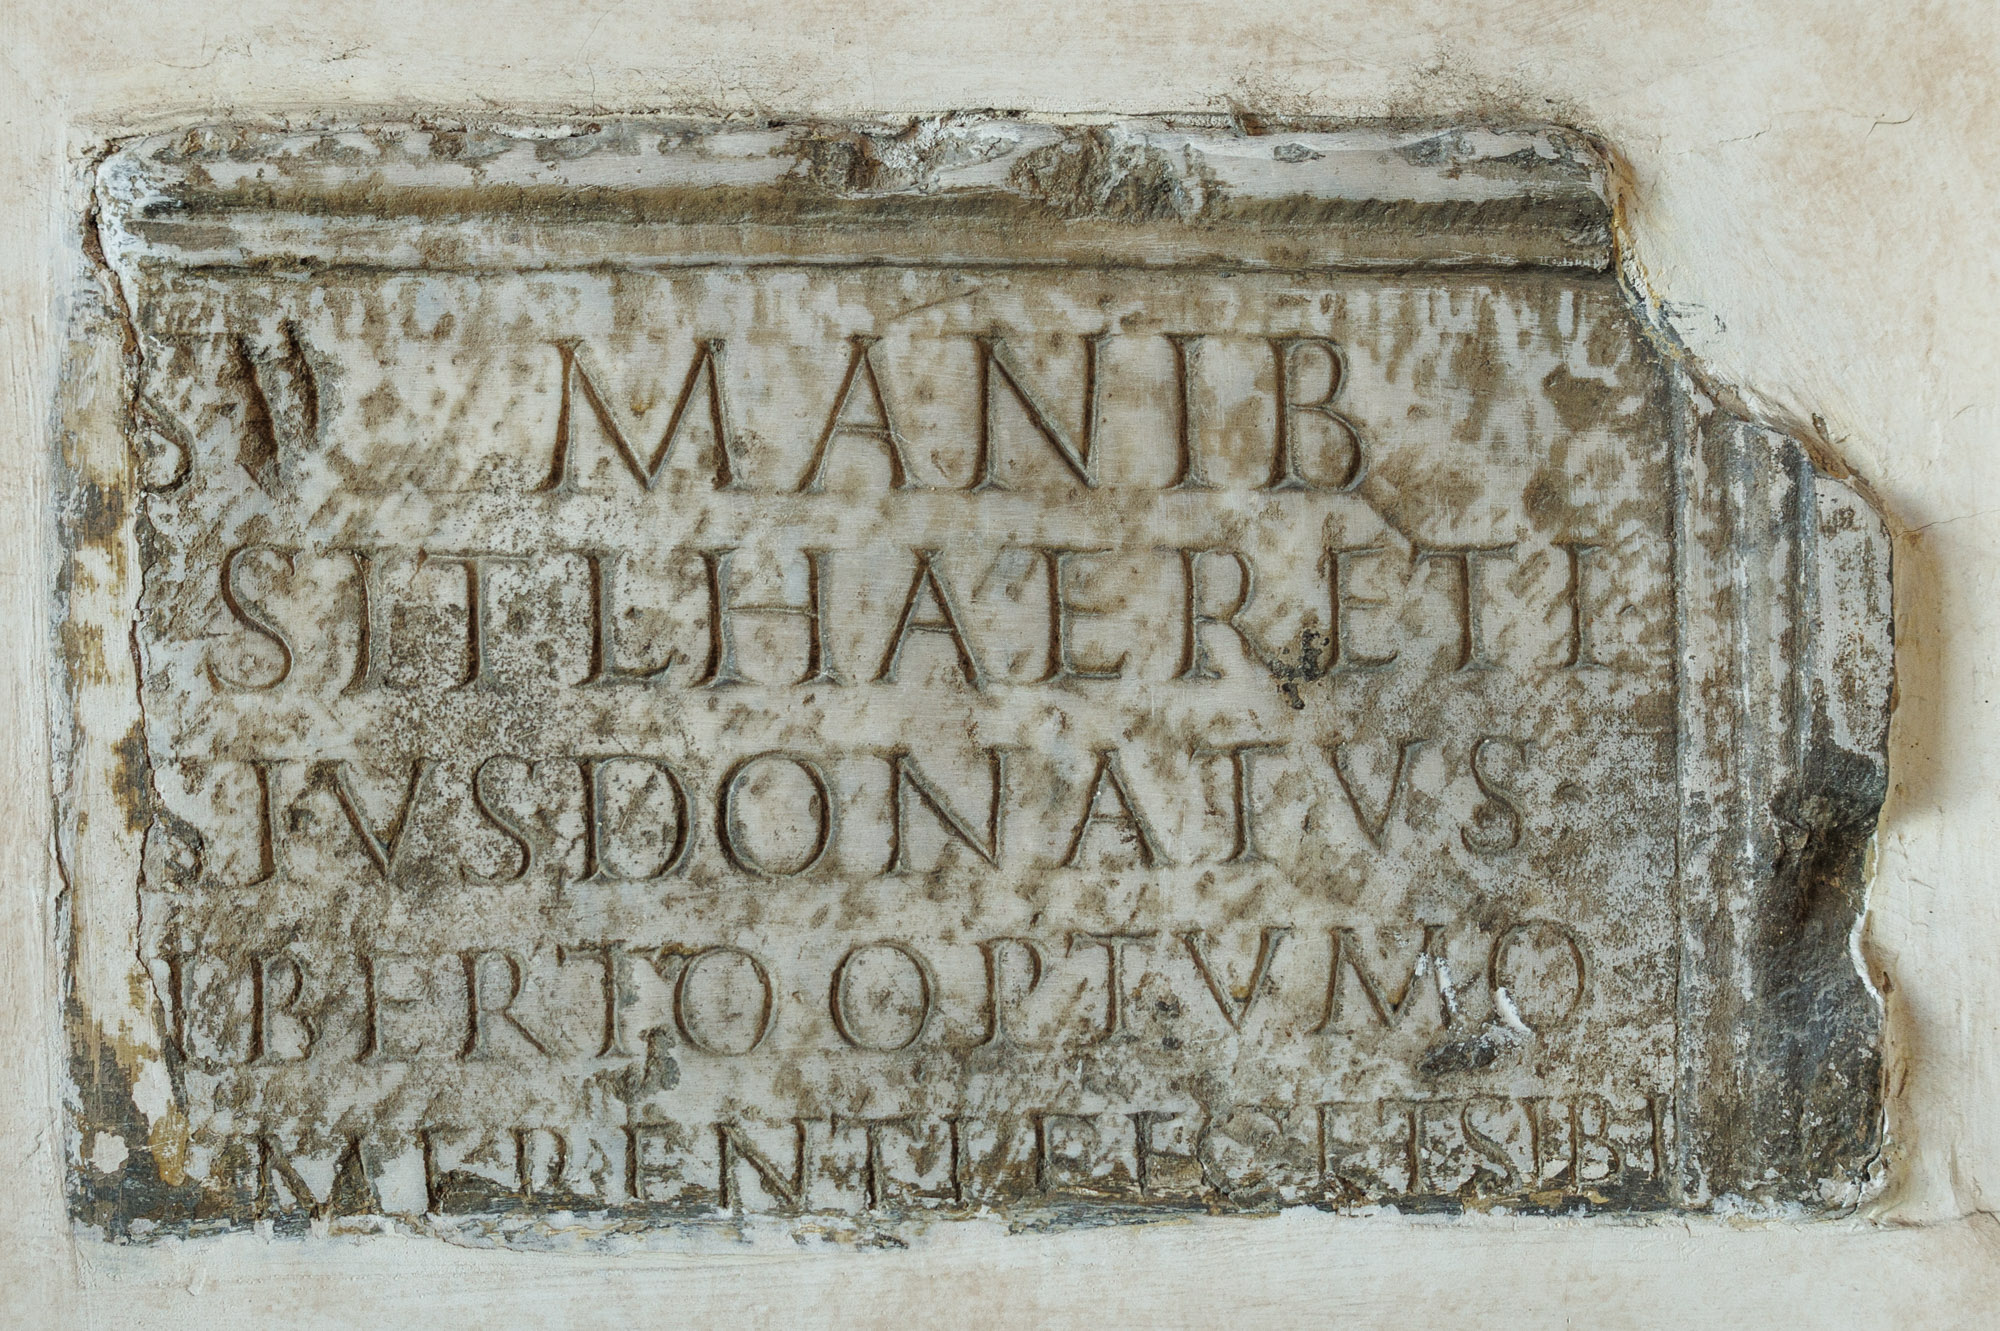 S V MANIB
SIT L HAERETI
SIVS DONATVS
IBERTO OPTVMO
MERENTI FEC ET SIBI